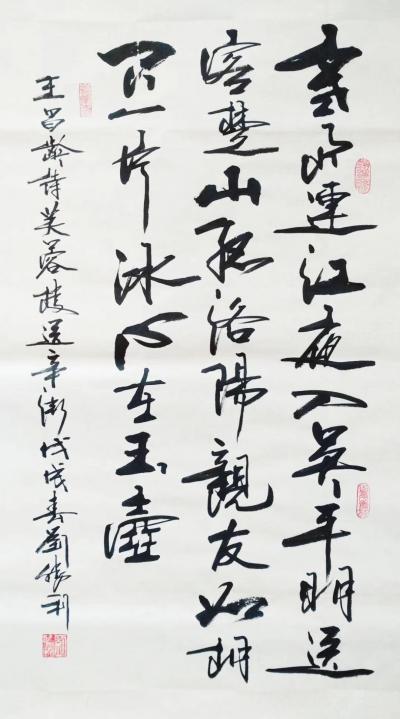 寒雨連江夜入吳平明送
客楚山孤洛陽親友如相
問一片冰心在玉壺
王昌齡詩芙蓉樓送辛漸戊戌春劉勝利